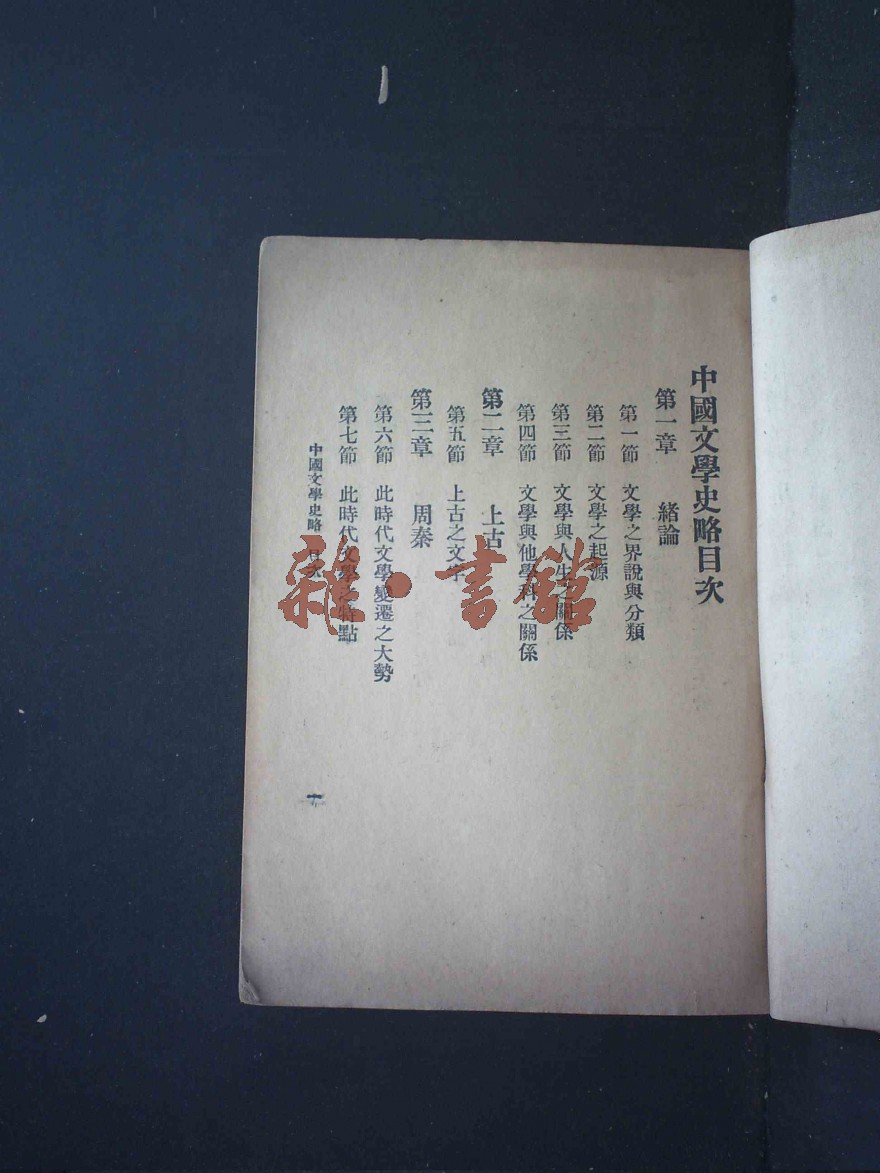 中國文學史略目次
第一章　緒論
第一節　文學之界說與分類
第二節　文學之起源
第三節　文學與人生之關係
第四節　文學與他學科之關係
第二章　上古
第五節　上古之文字
第三章　周秦
第六節　此時代文學變遷之大勢
第七節　此時代文學之特點
中國文學史略　目次
一
雜·書館